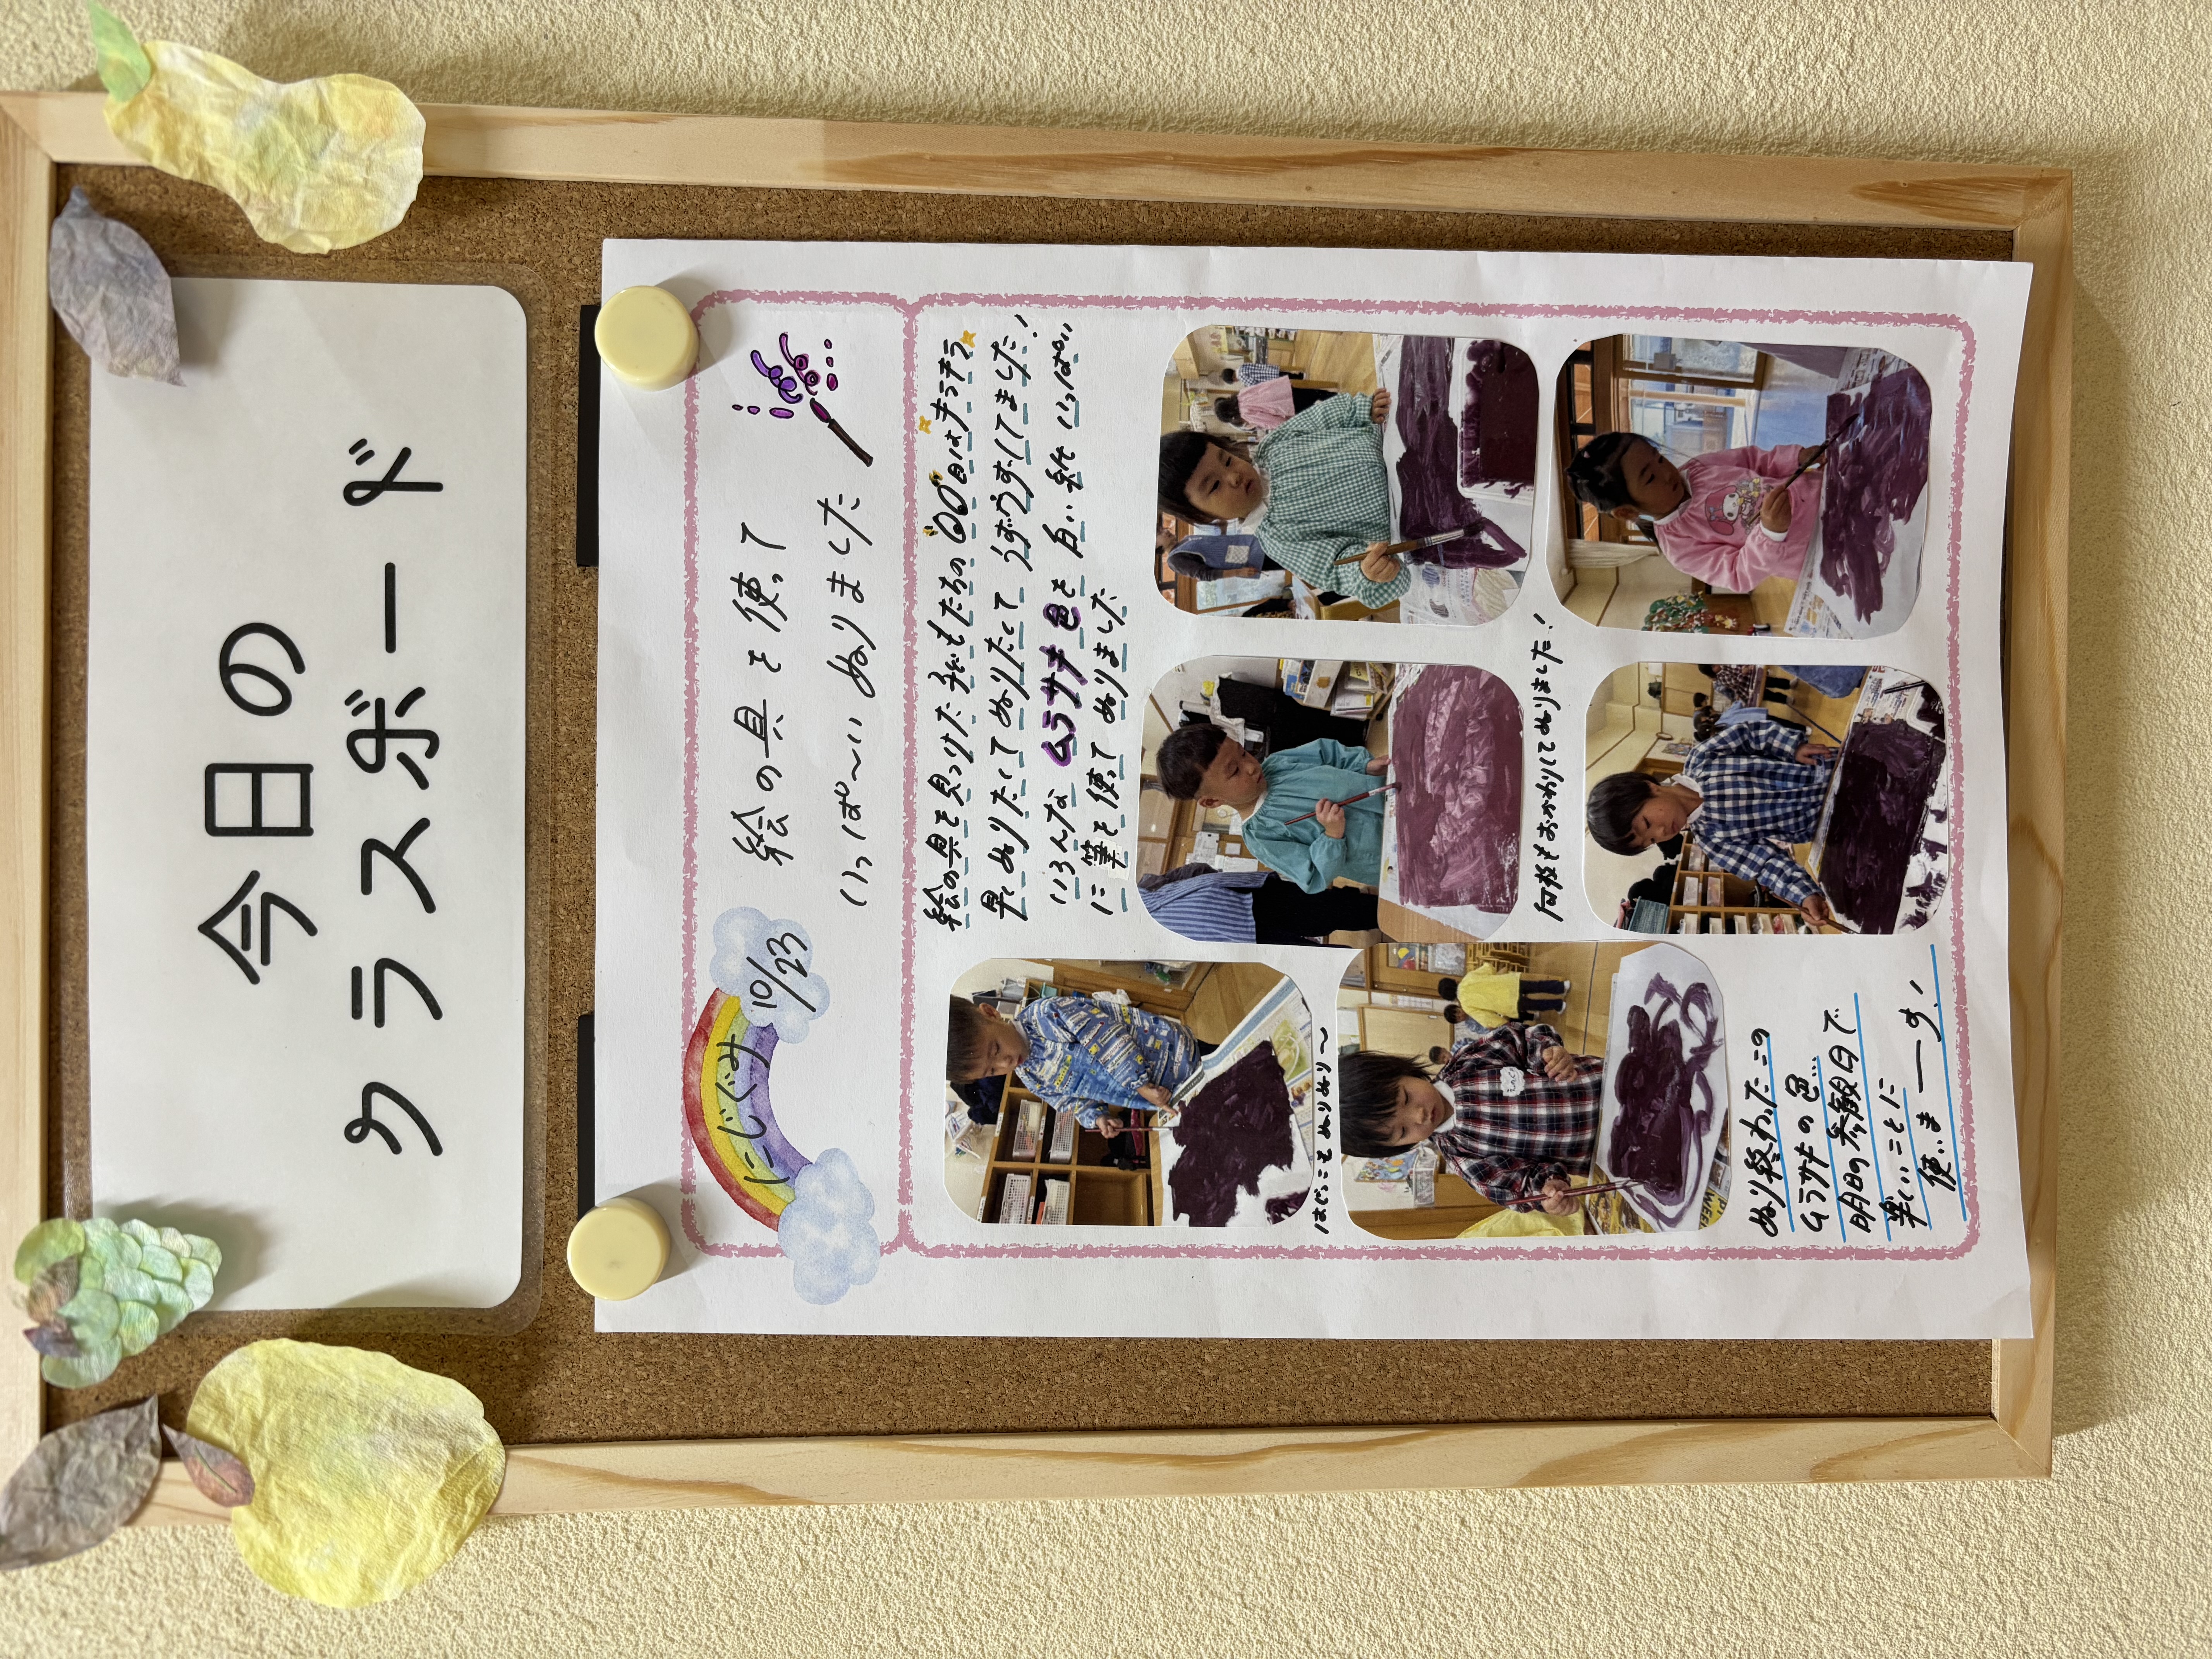 今日の
クラスボード
にじぐみ
10/23
絵の具を使って
いっぱ〜いぬりました
絵の具を見つけた子どもたちの目はキラキラ
早くぬりたくてぬりたくてうずうずしてました!
いろんなムラサキ色を白い紙いっぱい
に筆を使ってぬりました
はじっこもぬりぬり〜
何枚もおかわりしてぬりました!
ぬり終わったこの
ムラサキの色…
明日の参観日で
楽しいことに
使いまーす!